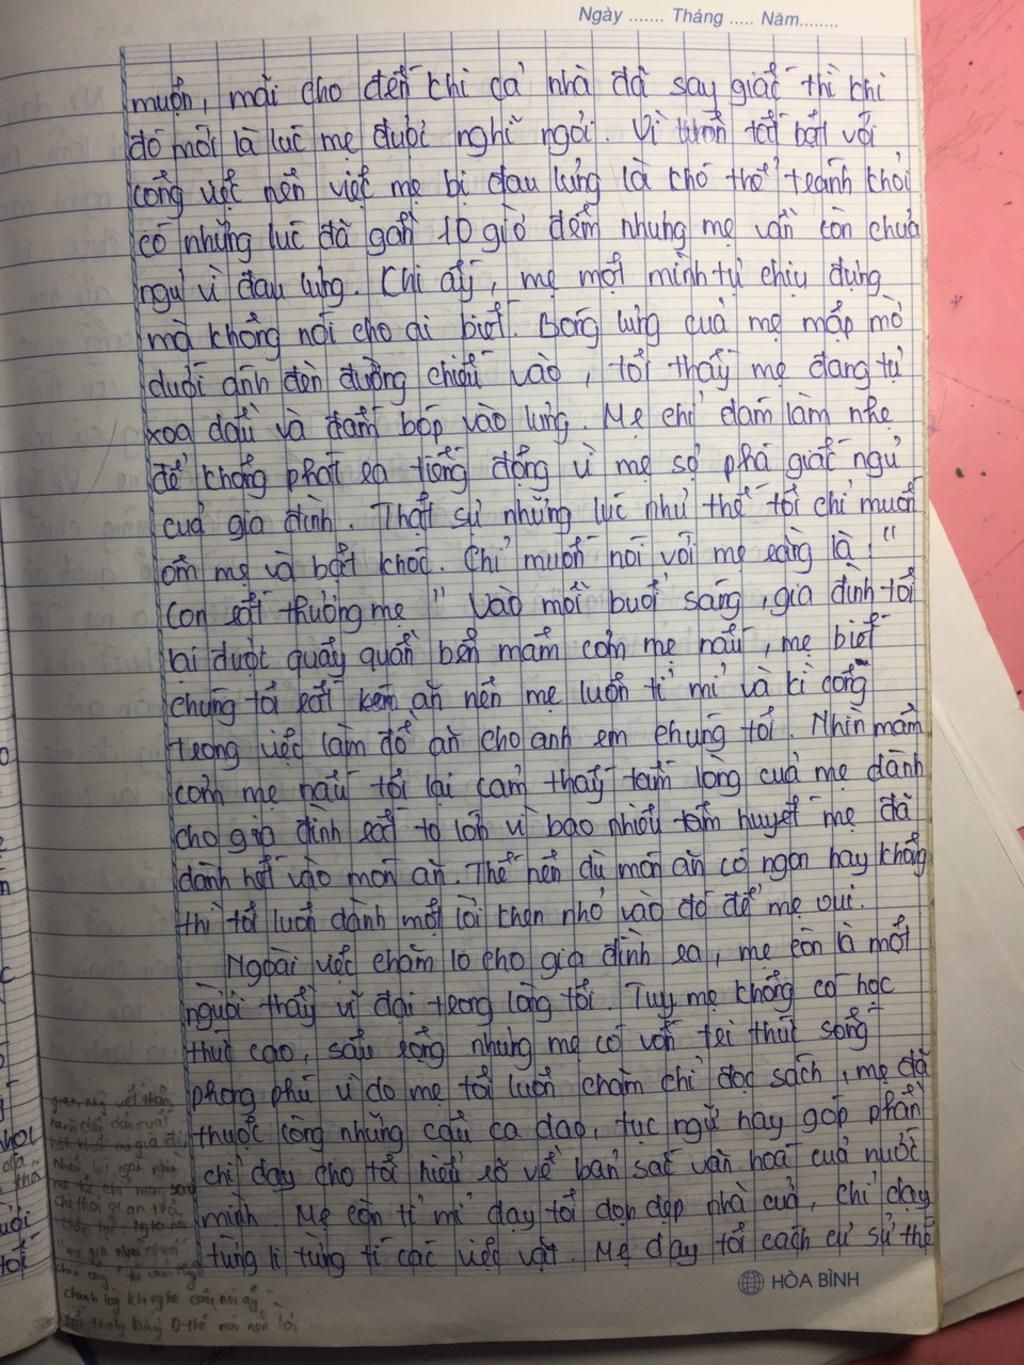 Ngày ....... Tháng ..... Năm........
muộn, mãi cho đến khi cả nhà đã say giấc thì khi
đó mới là lúc mẹ được nghỉ ngơi. Vì luôn tất bật với
công việc nên việc mẹ bị đau lưng là khó thể tránh khỏi
có những lúc đã gần 10 giờ đêm nhưng mẹ vẫn còn chưa
ngủ vì đau lưng. Khi ấy, mẹ một mình tự chịu đựng
mà không nói cho ai biết. Bóng lưng của mẹ mập mờ
dưới ánh đèn đường chiếu vào, tôi thấy mẹ đang tự
xoa dầu và đấm bóp vào lưng. Mẹ chỉ dám làm nhẹ
để không phát ra tiếng động vì mẹ sợ phá giấc ngủ
của gia đình. Thật sự những lúc như thế tôi chỉ muốn
ôm mẹ và bật khóc. Chỉ muốn nói với mẹ rằng là "
con rất thương mẹ" Vào mỗi buổi sáng, gia đình tôi
lại được quây quần bên mâm cơm mẹ nấu, mẹ biết
chúng tôi rất kén ăn nên mẹ luôn tỉ mỉ và kì công
trong việc làm đồ ăn cho anh em chúng tôi. Nhìn mâm
cơm mẹ nấu tôi lại cảm thấy tấm lòng của mẹ dành
cho gia đình rất to lớn vì bao nhiêu tâm huyết mẹ đã
dành hết vào món ăn. Thế nên dù món ăn có ngon hay không
thì tôi luôn dành một lời khen nhỏ vào đó để mẹ vui.
Ngoài việc chăm lo cho gia đình ra, mẹ còn là một
người thầy vĩ đại trong lòng tôi. Tuy mẹ không có học
thức cao, sâu rộng nhưng mẹ có vốn tri thức sống
phong phú vì do mẹ tôi luôn chăm chỉ đọc sách, mẹ đã
thuộc lòng những câu ca dao, tục ngữ hay góp phần
chỉ dạy cho tôi hiểu rõ về bản sắc văn hoá của nước
mình. Mẹ còn tỉ mỉ dạy tôi dọn dẹp nhà cửa, chỉ dạy
từng li từng tí các việc vặt. Mẹ dạy tôi cách cư sử thế
HÒA BÌNH